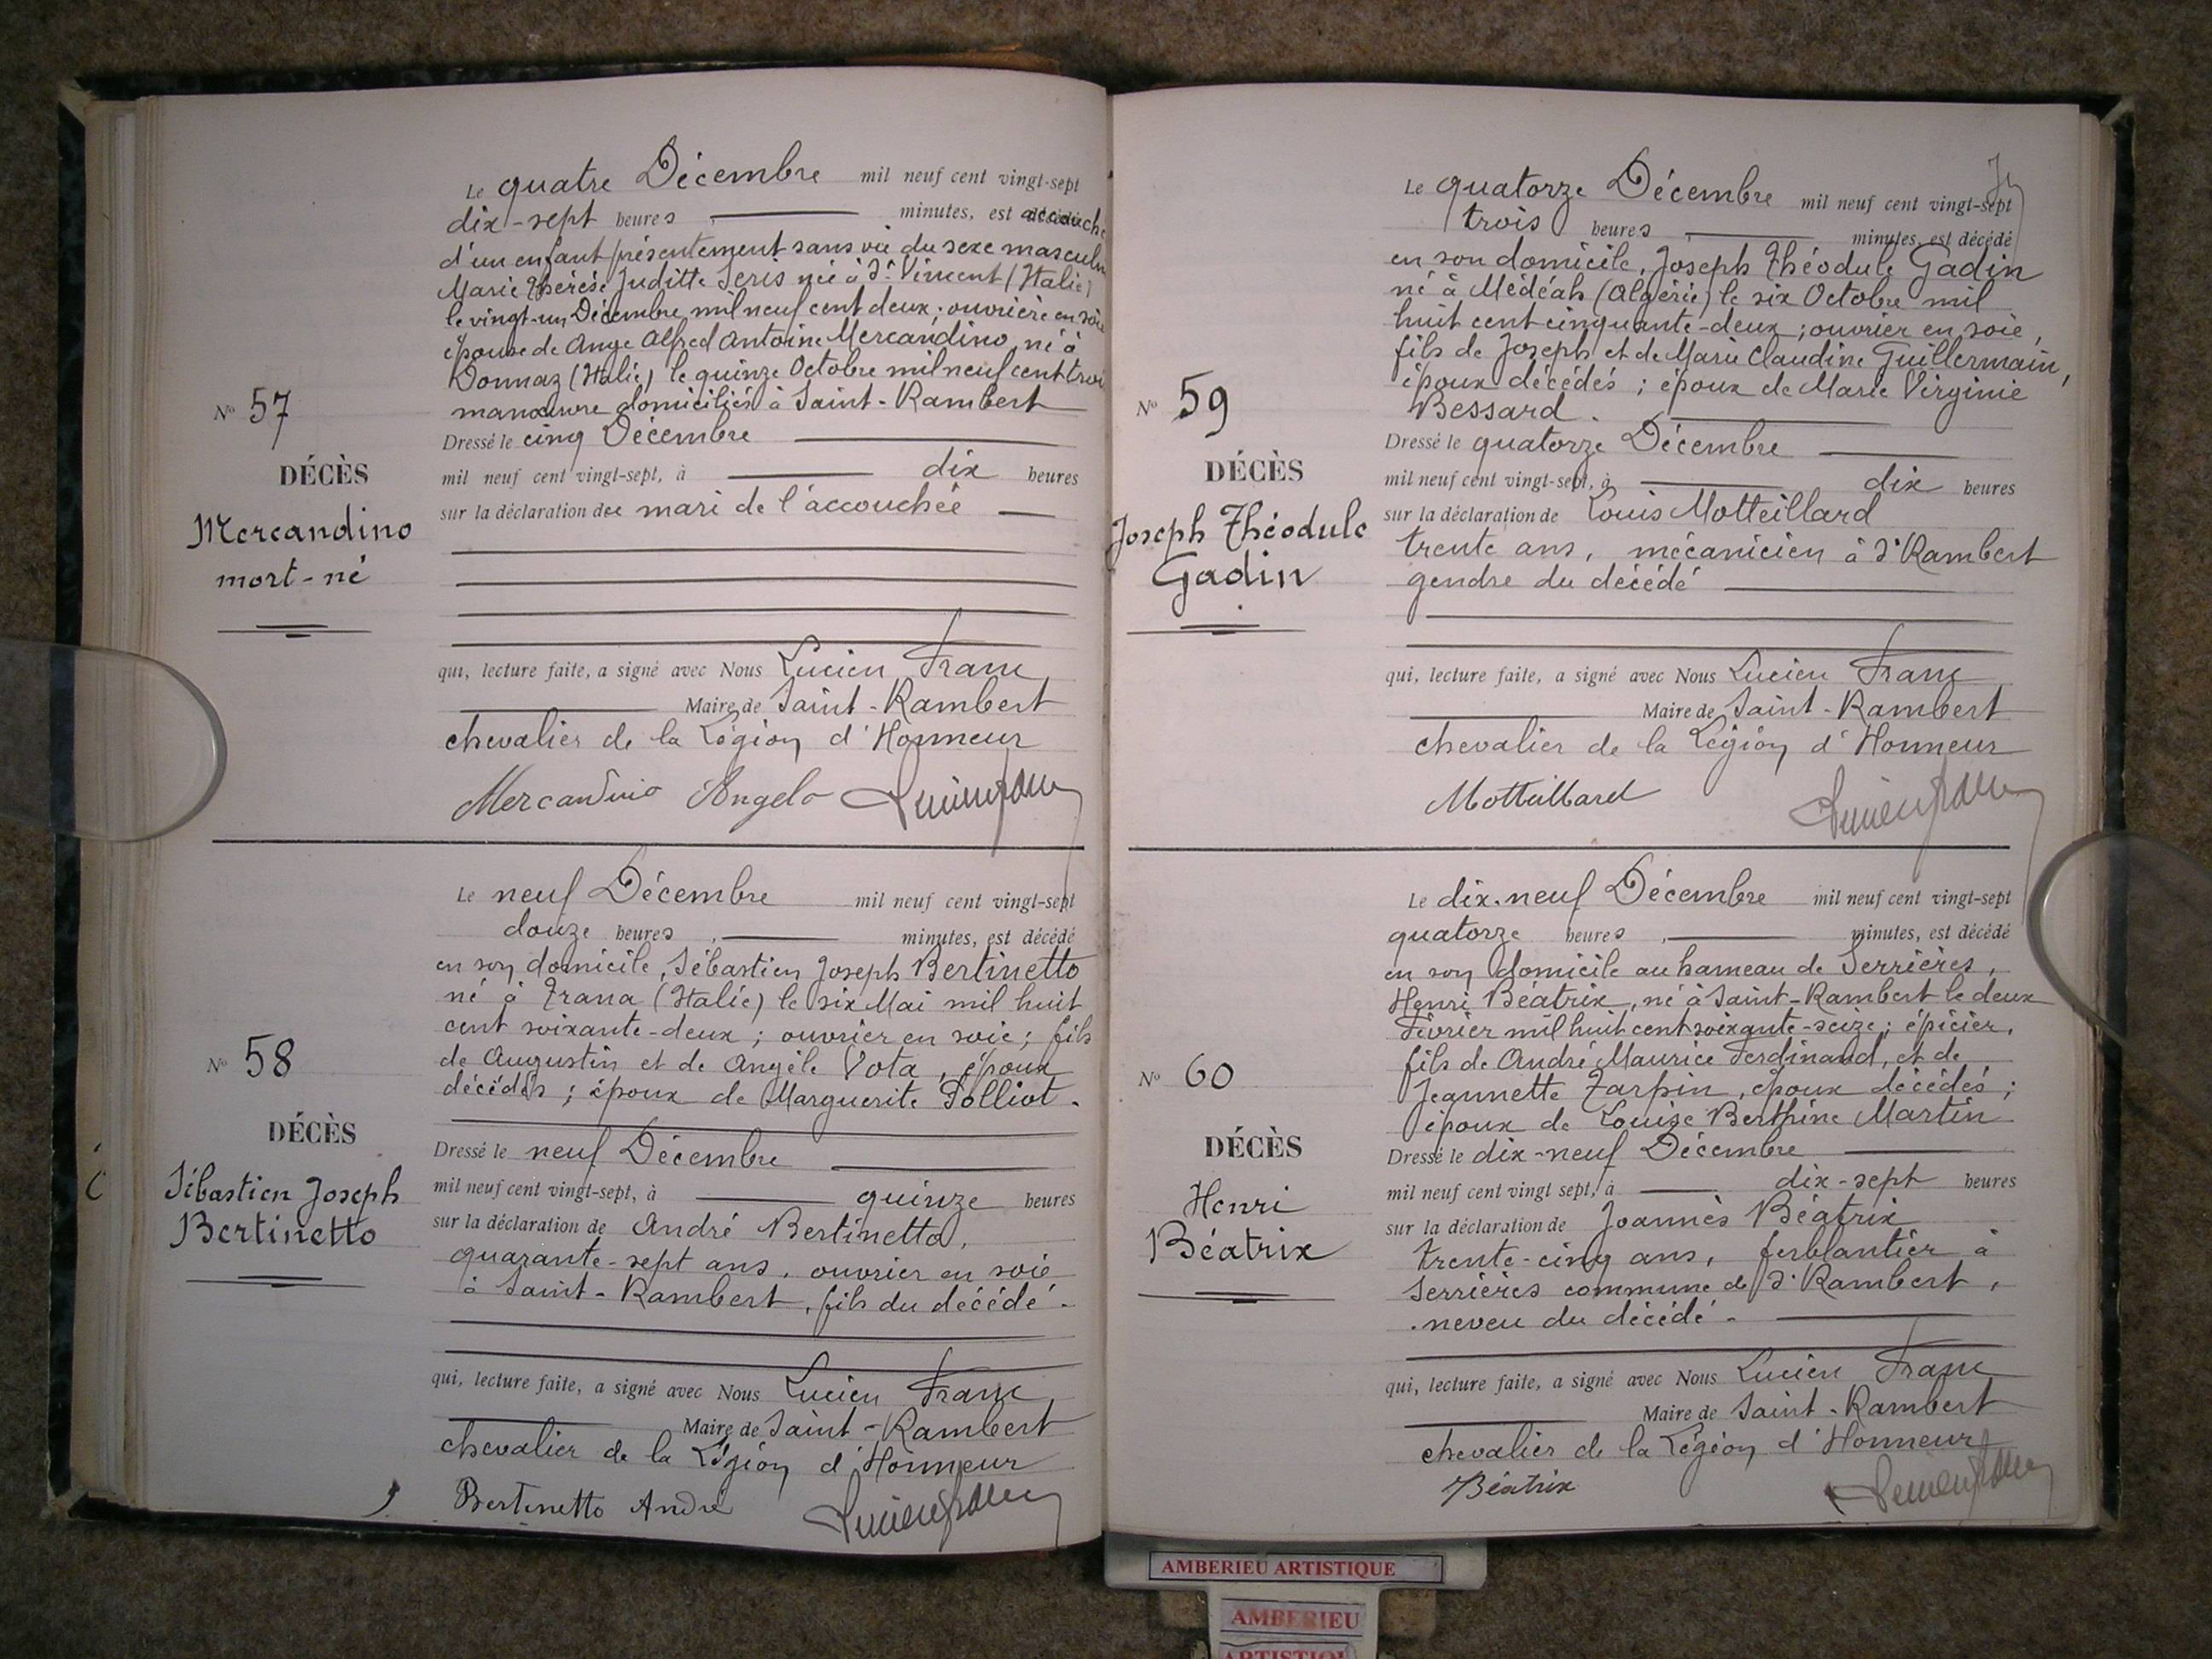 Le quatre Décembre mil neuf cent vingt-sept
dix-sept heures, minutes, est accouché
d'un enfant présentement sans vie du sexe masculin
Marie Thérèse Juditte Seris née à St Vincent (Italie)
le vingt-un Décembre mil neuf cent deux; ouvrière en soie
épouse de Ange Alfred Antoine Mercandino, né à
Donnaz (Italie) le quinze Octobre mil neuf cent trois
manœuvre domiciliés à Saint-Rambert
No 57
DÉCÈS
Mercandino
mort-né
Dressé le cinq Décembre
mil neuf cent vingt-sept, à dix heures
sur la déclaration du mari de l'accouchée
qui, lecture faite, a signé avec Nous Lucien Franc
Maire de Saint-Rambert
chevalier de la Légion d'Honneur
Mercandino Angelo
Le neuf Décembre mil neuf cent vingt-sept
douze heures, minutes, est décédé
en son domicile, Sébastien Joseph Bertinetto
né à Trana (Italie) le six Mai mil huit
cent soixante-deux; ouvrier en soie; fils
de Augustin et de Angèle Vota, époux
décédés; époux de Marguerite Polliot.
No 58
DÉCÈS
Sébastien Joseph
Bertinetto
Dressé le neuf Décembre
mil neuf cent vingt-sept, à quinze heures
sur la déclaration de André Bertinetto,
quarante-sept ans, ouvrier en soie
à Saint-Rambert, fils du décédé.
qui, lecture faite, a signé avec Nous Lucien Franc
Maire de Saint-Rambert
chevalier de la Légion d'Honneur
Bertinetto André
Le quatorze Décembre mil neuf cent vingt-sept
trois heures, minutes, est décédé
en son domicile, Joseph Théodule Gadin
né à Médéah (Algérie) le six Octobre mil
huit cent cinquante-deux; ouvrier en soie,
fils de Joseph et de Marie Claudine Guillermain,
époux décédés; époux de Marie Virginie
Bessard.
No 59
DÉCÈS
Joseph Théodule
Gadin
Dressé le quatorze Décembre
mil neuf cent vingt-sept, à dix heures
sur la déclaration de Louis Motteillard
trente ans, mécanicien à St Rambert
gendre du décédé
qui, lecture faite, a signé avec Nous Lucien Franc
Maire de Saint-Rambert
chevalier de la Légion d'Honneur
Motteillard
Le dix-neuf Décembre mil neuf cent vingt-sept
quatorze heures, minutes, est décédé
en son domicile au hameau de Serrières,
Henri Béatrix, né à Saint-Rambert le deux
Février mil huit cent soixante-seize; épicier,
fils de André Maurice Ferdinand, et de
Jeannette Tarpin, époux décédés;
époux de Louise Berthine Martin
No 60
DÉCÈS
Henri
Béatrix
Dressé le dix-neuf Décembre
mil neuf cent vingt sept, à dix-sept heures
sur la déclaration de Joannès Béatrix
trente-cinq ans, ferblantier à
Serrières commune de St Rambert,
neveu du décédé.
qui, lecture faite, a signé avec Nous Lucien Franc
Maire de Saint-Rambert
chevalier de la Légion d'Honneur
Béatrix
AMBERIEU ARTISTIQUE
AMBERIEU
ARTISTIQUE